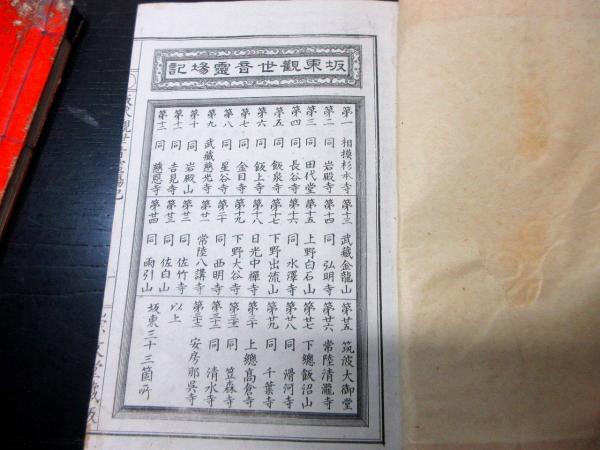 坂東觀世音靈場記
第一 相摸杉本寺
第二 同 岩殿寺
第三 同 田代堂
第四 同 長谷寺
第五 同 飯泉寺
第六 同 飯上寺
第七 同 金目寺
第八 同 星谷寺
第九 武藏慈光寺
第十 同 岩殿山
第十一 同 吉見寺
第十二 同 慈恩寺
第十三 武藏金龍山
第十四 同 弘明寺
第十五 上野白石山
第十六 同 水澤寺
第十七 下野出流山
第十八 日光中禪寺
第十九 下野大谷寺
第二十 同 西明寺
第廿一 常陸八講寺
第廿二 同 佐竹寺
第廿三 同 佐白山
第廿四 同 雨引山
第廿五 筑波大御堂
第廿六 常陸清瀧寺
第廿七 下總飯沼山
第廿八 同 滑河寺
第廿九 同 千葉寺
第三十 上總高倉寺
第三十一 同 笠森寺
第三十二 同 清水寺
第三十三 安房那吳寺
以上
坂東三十三箇所